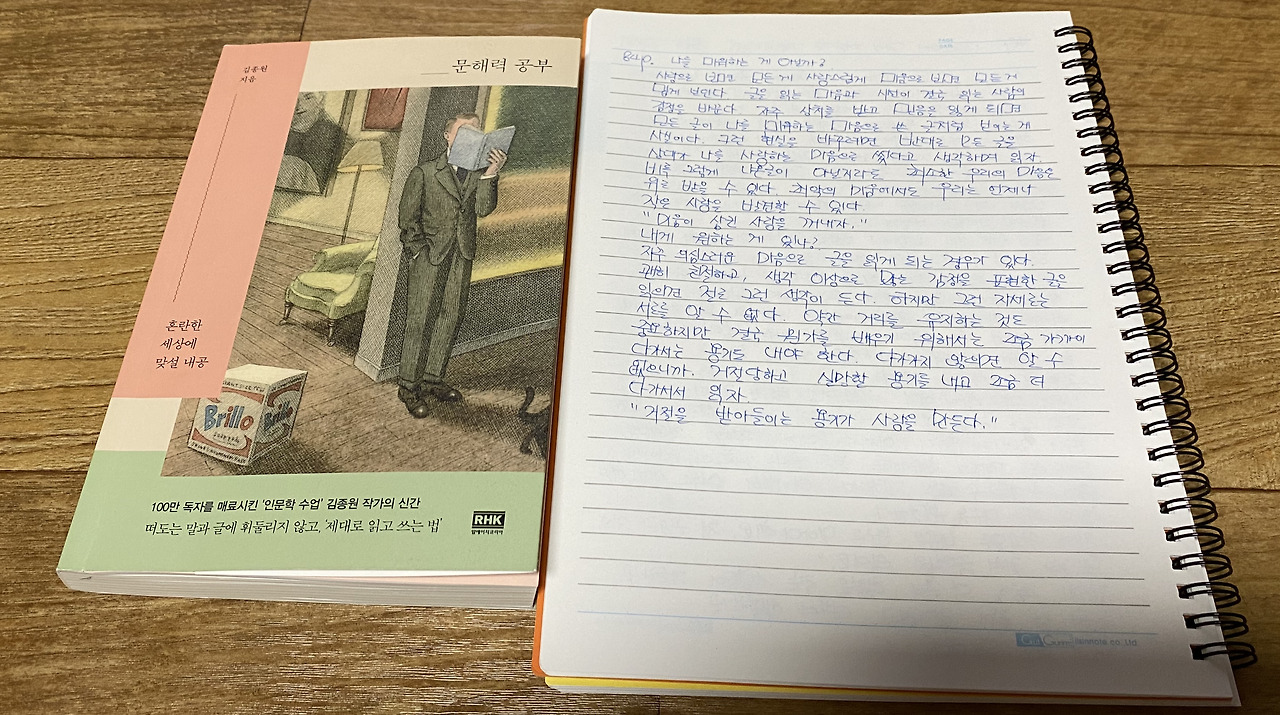 김종원
지음
문해력 공부
혼란한
세상에
맞설 내공
Brillo
Brillo
100만 독자를 매료시킨 '인문학 수업' 김종원 작가의 신간
떠도는 말과 글에 휘둘리지 않고, '제대로 읽고 쓰는 법'
RHK
알에이치코리아
84p. 나를 미워하는 게 아닐까?
사랑으로 보면 모든게 사랑스럽게 미움으로 보면 모든게
밉게 보인다. 글은 읽는 마음과 시선이 결국 읽는 사람의
감정을 바꾼다. 자주 상처를 받고 믿음을 잃게 되면
모든 글이 나를 미워하는 마음으로 쓴 글처럼 보이는 게
사실이다. 그런 현실을 바꾸려면 반대로 모든 글을
상대가 나를 사랑하는 마음으로 썼다고 생각하며 읽자.
비록 그렇게 나온글이 아닐지라도 최소한 우리의 마음은
위로 받을 수 있다. 최악의 마음에서도 우리는 언제나
작은 사랑을 발견할 수 있다.
"마음이 상권 사랑을 꺼내자."
내게 원하는 게 있나?
자주 의심스러운 마음으로 글을 읽게 되는 경우가 있다.
괜히 친절하고, 생각 이상으로 많은 감정을 표현한 글은
읽으면 절로 그런 생각이 든다. 하지만 그런 자세로는
서로를 알 수 없다. 약간 거리를 유지하는 것도
중요하지만 결국 뭔가를 배우기 위해서는 조금 가까이
다가서는 용기도 내야 한다. 다가가지 않으면 알 수
없으니까. 거절당하고 실망할 용기를 내고 조금 더
다가서서 읽자.
"거절을 받아들이는 용기가 사랑을 만든다."